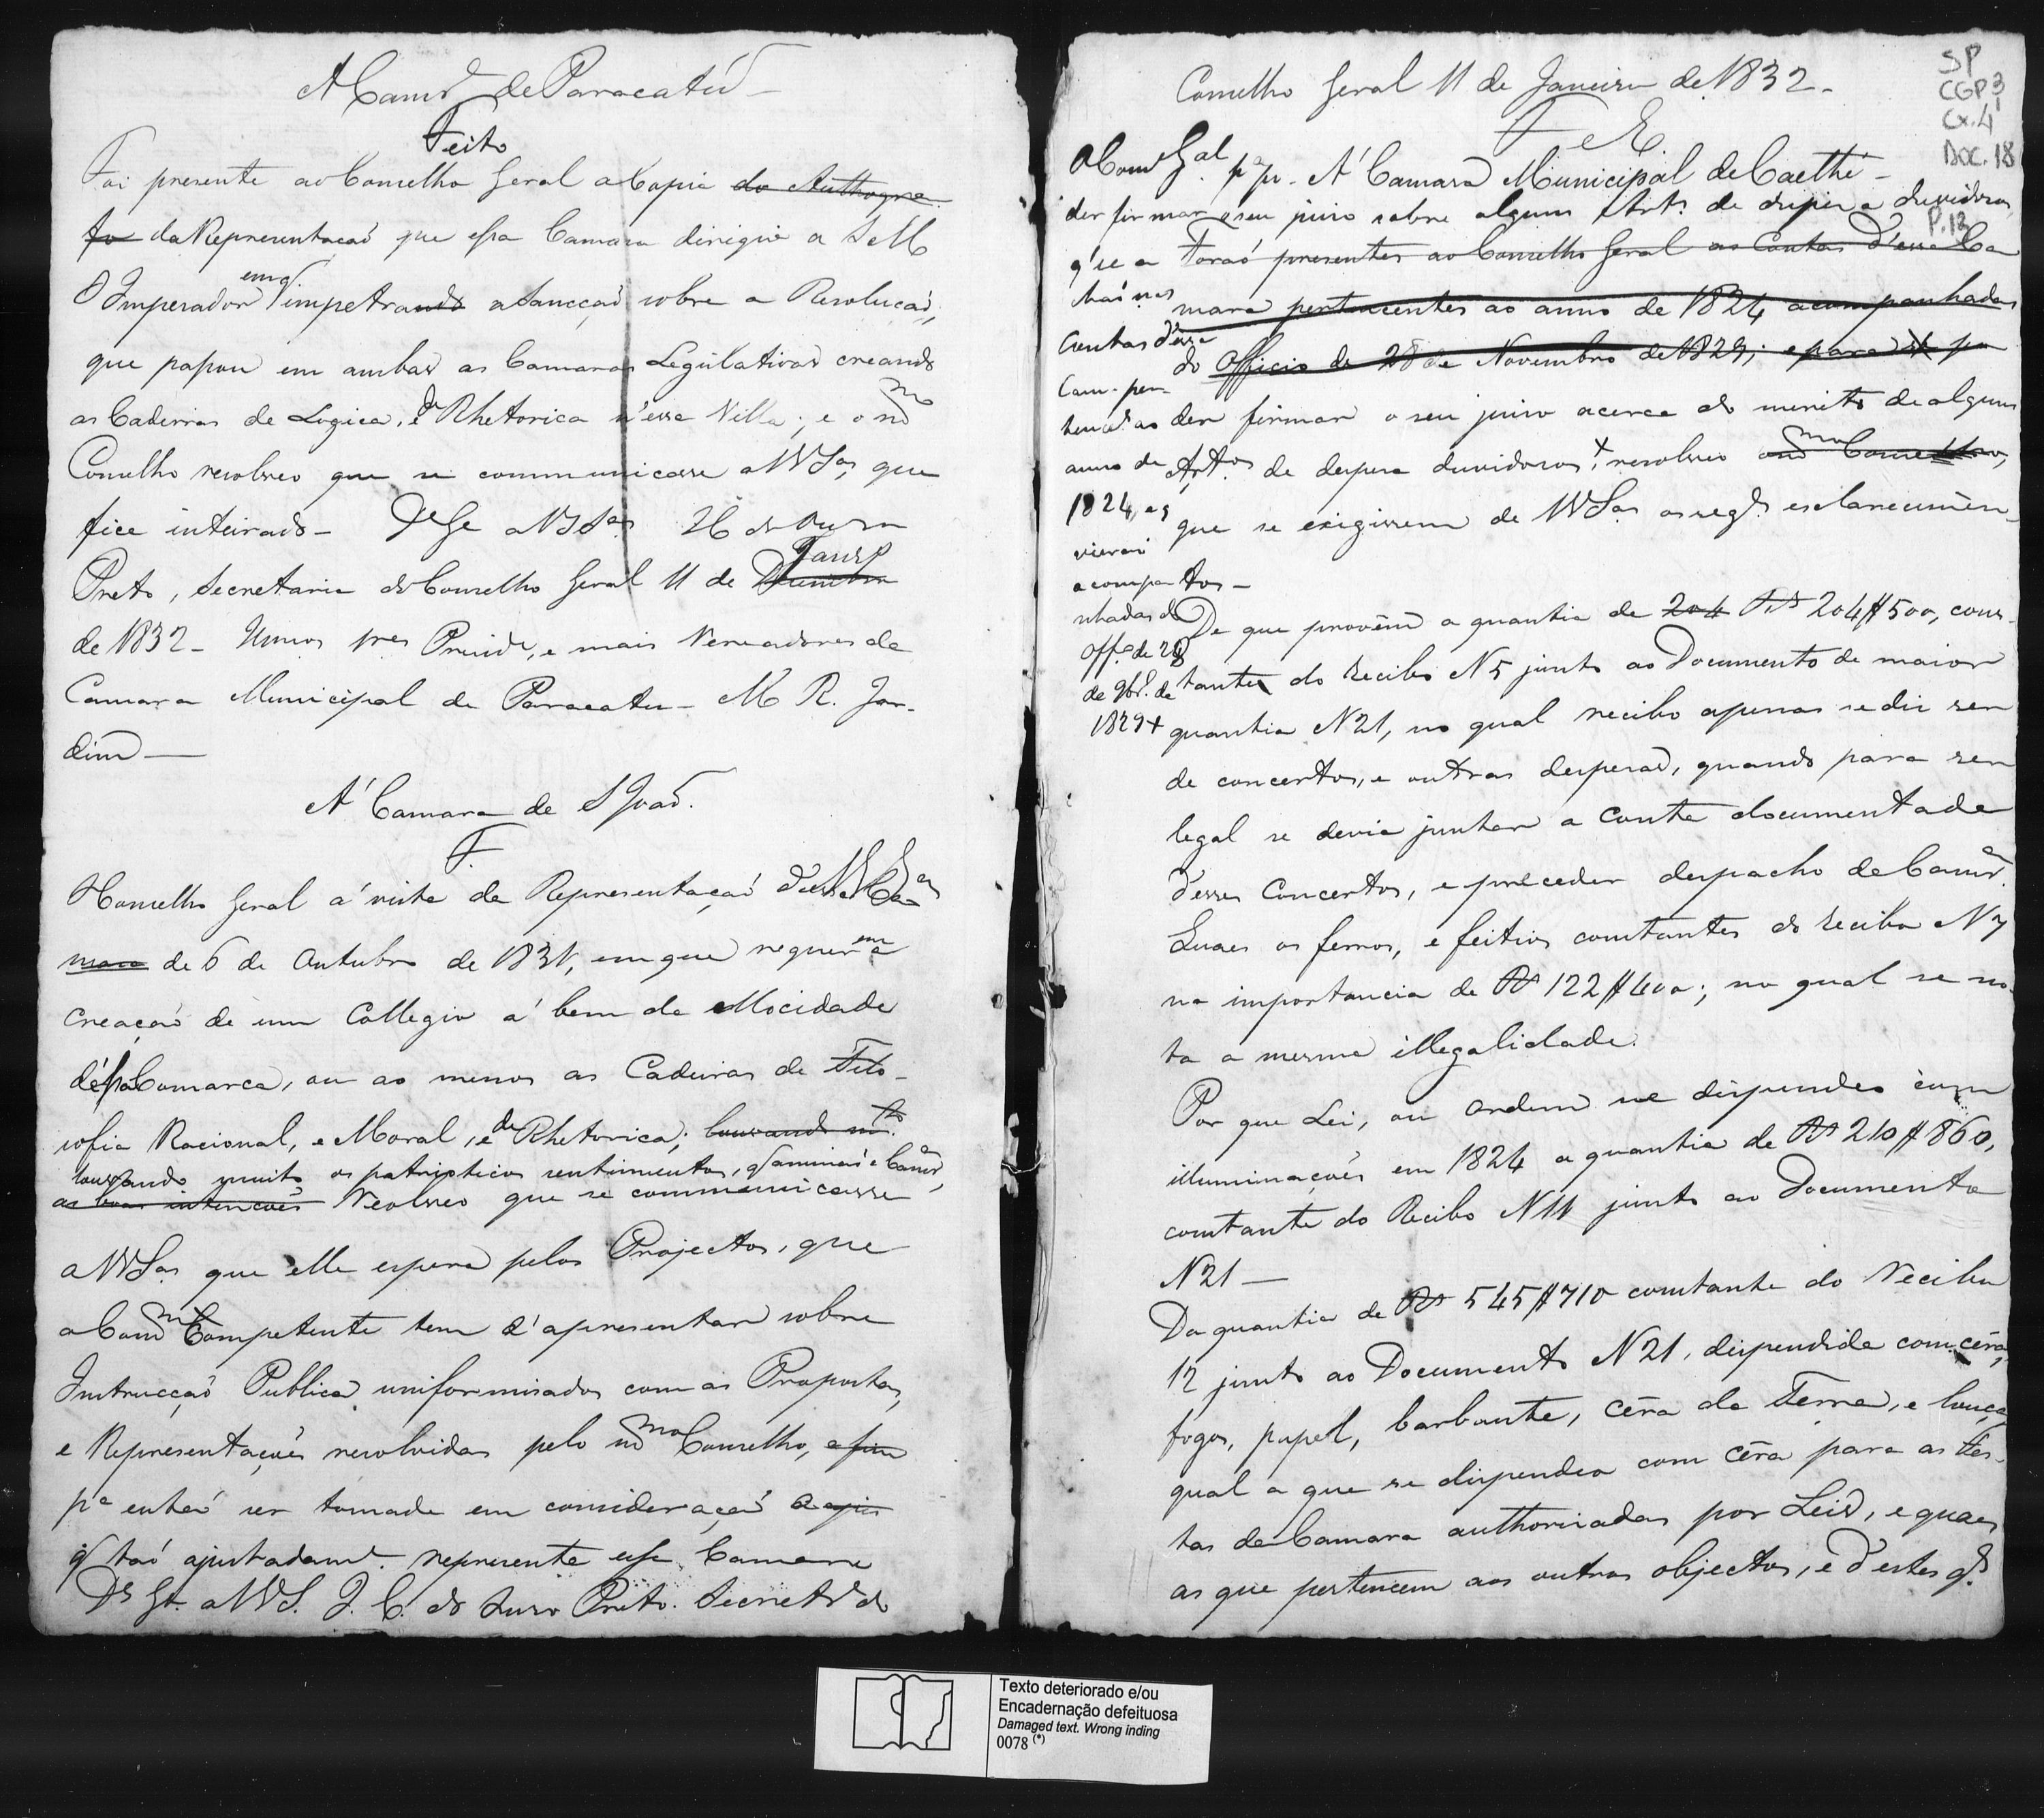 A Camr.ª de Paracatú
Feito
Foi presente ao Conselho Geral a Copia do Authogra-
fo da Representação que essa Camara dirigio a S M
O Imperador em q. impetrando a Sancção sobre a Resolução,
que passou em ambas as Camaras Legislativas creando
as Cadeiras de Logica, e de Rhetorica n'essa Villa; e o mmo
Conselho resolveo que se communicasse a VV Sas, que
fica inteirado - Ds Ge a VV Sas I C do Ouro
Preto, Secretaria do Conselho Geral 11 de Dezembro Janro
de 1832 - Illmos Sres Preside, e mais Vereadores da
Camara Municipal de Paracatu - M R. Jar-
dim
A' Camara de S João.
F.
O Conselho Geral á vista da Representação d'essa Ca VV Sas
mara de 6 de Outubro de 1831, em que requerem a
creação de um Collegio á bem da Mocidade
d'essa Comarca, ou ao menos as Cadeiras de Filo-
sofia Racional, e Moral, e de Rhetorica; louvando mto.
louvando muito os patrioticos sentimentos, q animão a Camr.ª,
as boas intenções Resolveo que se communicasse
a VV Sas que elle espera pelos Projectos, que
a Comm Competente tem d'apresentar sobre
Instrucção Publica uniformisados com as Propostas,
e Representações resolvidas pelo mmo Conselho, a fim
pª então ser tomada em consideração
q tão ajustadamte representa essa Camara
Ds Ge. a VV S. I. C. do Ouro Preto. Secretrª do
SP
CGP3
Cx. 4
DOC. 18
P.12
Conselho Geral 11 de Janeiro de 1832 -
F e E.
A' Camara Municipal de Caethé -
O Cons Gal pª po-
der firmar o seu juizo sobre alguns Arts. de despeza duvidosos
q' se a
chão nas
Contas d'essa
Cam. per-
tences ao
anno de
1824, e q
vierão
acompa
nhadas do
Offº de 28
de 9br. de
1829 +
Forão presentes ao Conselho Geral as Contas d'essa Ca
mara pertencentes ao anno de 1824 acompanhadas
do Officio de 28 de Novembro de 1829; e para po
der firmar o seu juizo acerca do merito de alguns
Artos de despeza duvidosos, + resolveo o mmo Conselho,
que se exigissem de VV Sas os segs esclarecimen-
tos -
De que provêm a quantia de 204 Rs 204$500, cons-
tante do recibo N 5 junto ao Documento de maior
quantia N 21, no qual recibo apenas se diz ser
de concertos, e outras despezas, quando para ser
legal se devia juntar a Conta documentada
d'esses Concertos, e preceder despacho da Camrª.
Quaes os ferros, e feitios constantes do recibo N 7
na importancia de Rs 122$400; no qual se no-
ta a mesma illegalidade.
Por que Lei, ou Ordem se dispendeo com
illuminações em 1824 a quantia de Rs 210$860,
constante do Recibo N 11 junto ao Documento
N 21 -
Da quantia de Rs 545$710 constante do Recibo
12 junto ao Documento N 21, dispendida com cêra,
fogos, papel, barbante, cêra da Terra, e louça,
qual a que se dispendeo com cêra para as Fes-
tas da Camara authorisadas por Leis, e quaes
as que pertencem aos outros objectos, e d'estes q.
Texto deteriorado e/ou
Encadernação defeituosa
Damaged text. Wrong inding
0078 (*)